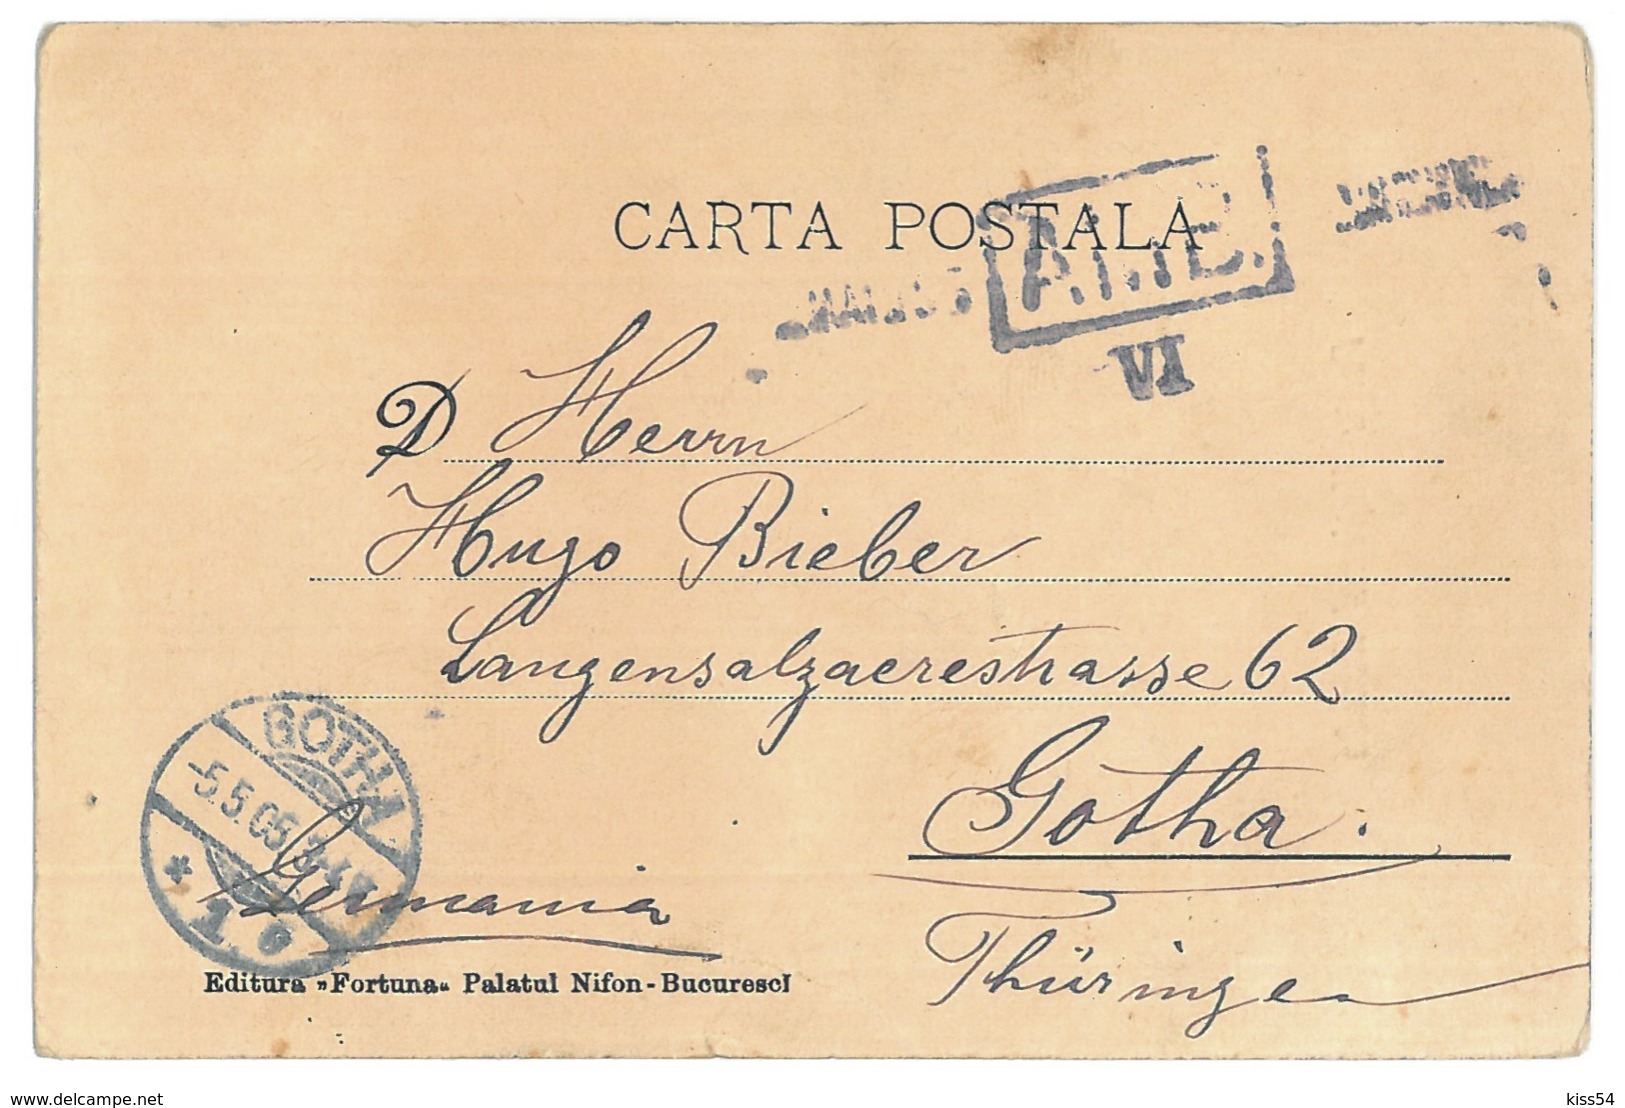 CARTA POSTALA
AMB.
VI
D Herrn
Hugo Bieber
Langensalzaerestrasse 62
Gotha.
Thüringen
Germania
GOTHA
-5.5.05
* 1 *
Editura „Fortuna“ Palatul Nifon-Bucuresci
www.delcampe.net
kiss54